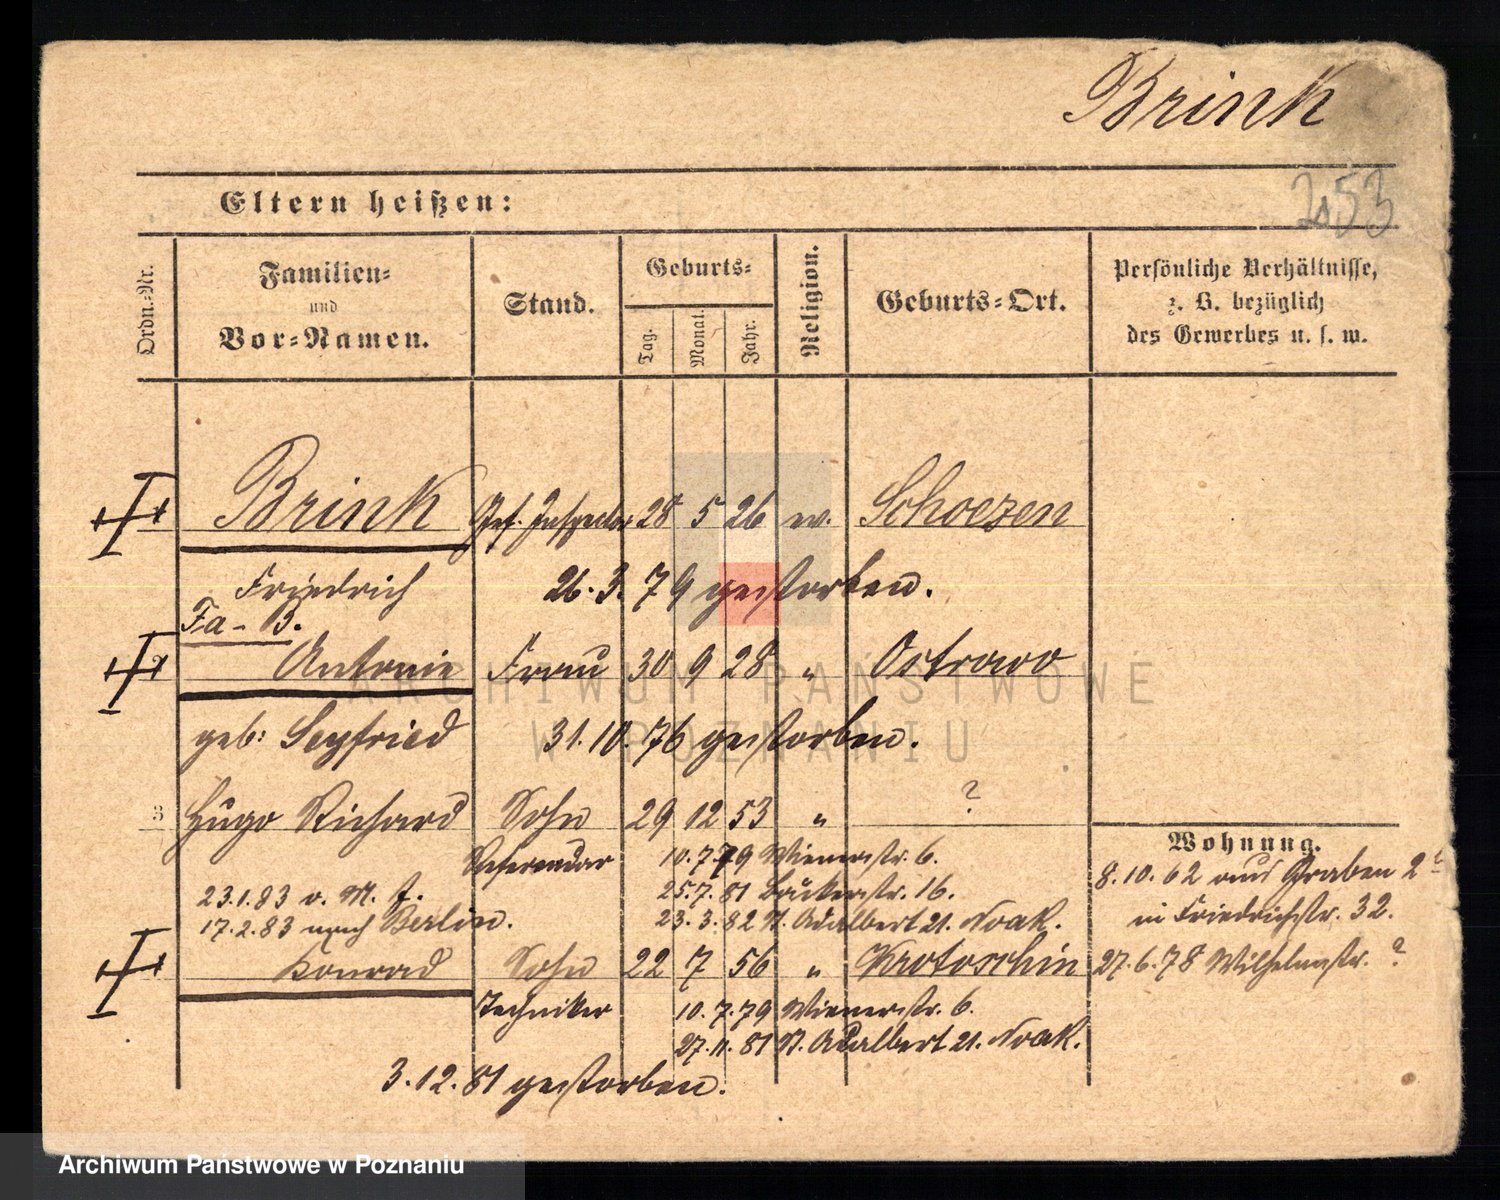 Brink
253
Eltern heißen:
Ordn.-Nr.
Familien-
und
Vor-Namen.
Stand.
Geburts-
Tag.
Monat.
Jahr.
Religion.
Geburts-Ort.
Persönliche Verhältnisse,
z. B. bezüglich
des Gewerbes u. s. w.
Brink Inspector 28 5 26 ev. Schoezen
Friedrich 26.3.79 gestorben.
Fa- B.
Antonie Frau 30 9 28 " Ostrowo
geb: Seyfried 31.10.76 gestorben.
3 Hugo Richard Sohn 29 12 53 " ?
Referendar 10.7.79 Wienerstr. 6.
23.1.83 v. M. f. 25.7.81 Bäckerstr. 16.
17.2.83 nach Berlin. 23.3.82 St. Adalbert 21. Noak.
Konrad Sohn 22 7 56 " Krotoschin
Techniker 10.7.79 Wienerstr. 6.
27.11.81 St. Adalbert 21. Noak.
3.12.81 gestorben.
Wohnung.
8.10.62 aus Graben 2
in Friedrichstr. 32.
27.6.78 Wilhelmstr. ?
ARCHIWUM PAŃSTWOWE
W POZNANIU
Archiwum Państwowe w Poznaniu